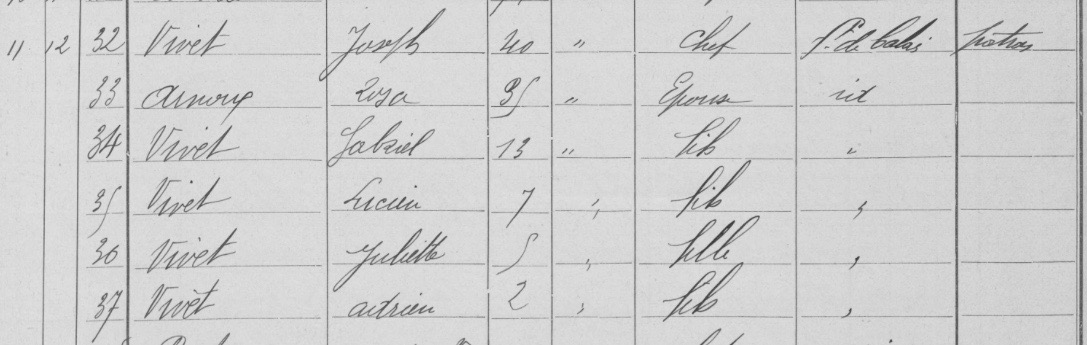 11 12 32 Vivet Joseph 40 " Chef patron
33 Arnoux Rosa 35 " Epouse id
34 Vivet Gabriel 13 " fils "
35 Vivet Lucien 7 " fils "
36 Vivet Juliette 5 " fille "
37 Vivet Adrien 2 " fils "